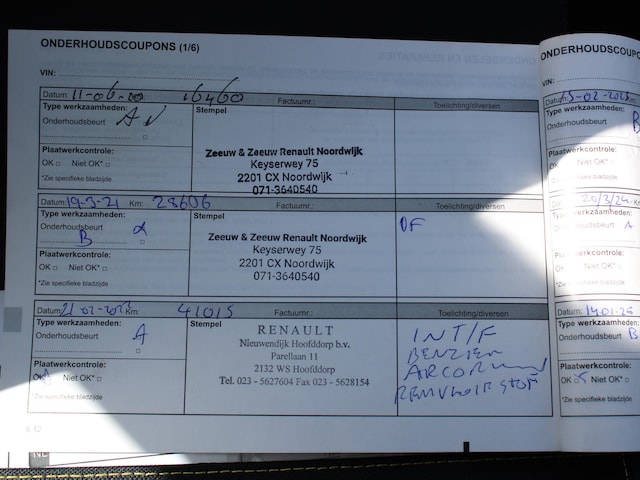 ONDERHOUDSCOUPONS (1/6)
VIN:
Datum: 11-06-20 16460 Factuurnr.: Toelichting/diversen
Type werkzaamheden:
Onderhoudsbeurt A
Plaatwerkcontrole:
OK □ Niet OK* □
*Zie specifieke bladzijde
Stempel
Zeeuw & Zeeuw Renault Noordwijk
Keyserwey 75
2201 CX Noordwijk
071-3640540
Datum: 19-3-21 Km: 28606 Factuurnr.: Toelichting/diversen
Type werkzaamheden:
Onderhoudsbeurt
B
Plaatwerkcontrole:
OK □ Niet OK* □
*Zie specifieke bladzijde
Stempel
Zeeuw & Zeeuw Renault Noordwijk
Keyserwey 75
2201 CX Noordwijk
071-3640540
Datum: Km: 41015 Factuurnr.: Toelichting/diversen
Type werkzaamheden:
Onderhoudsbeurt A
Plaatwerkcontrole:
OK Niet OK* □
*Zie specifieke bladzijde
Stempel
RENAULT
Nieuwendijk Hoofddorp b.v.
Parellaan 11
2132 WS Hoofddorp
Tel. 023 - 5627604 Fax 023 - 5628154
INT/F
6.12
ONDERHOUDSCOUPO
VIN:
Datum: Km:
Type werkzaamheden:
Onderhoudsbeurt B
Plaatwerkcontrole:
OK □ Niet OK* □
*Zie specifieke bladzijde
20/3/24 Km:
werkzaamheden:
Onderhoudsbeurt A
Plaatwerkcontrole:
OK □ Niet OK* □
*Zie specifieke bladzijde
Datum:
Type werkzaamheden:
Onderhoudsbeurt B
Plaatwerkcontrole:
OK Niet OK* □
*Zie specifieke bladzijde
NL